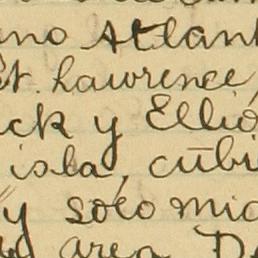 ano Atlant
St. Lawrence,
ck y Ellió
isla, cubi
y sólo mid
area